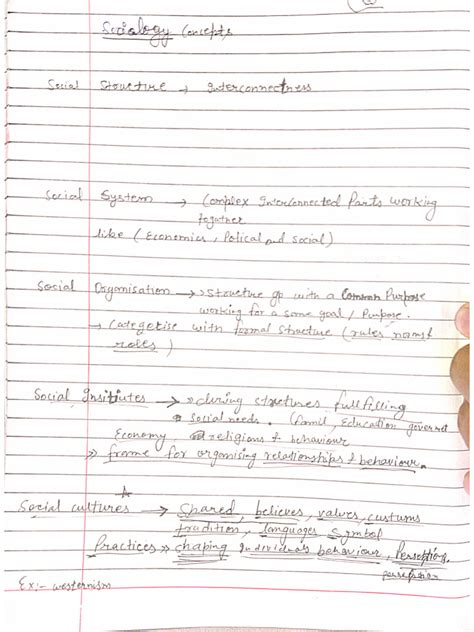 Sociology Concepts
Social Structure → Interconnectness
Social System → Complex Interconnected Parts working
together
like (Economics, Polical and Social)
Social Organisation → » Structure gp with a Common Purpose
working for a some goal / Purpose.
→ Categorise with formal Structure (rules norms &
roles)
Social Institutes → » structures fullfilling
social needs. (Famil, Education
Economy religions & behaviour
» frame for organising relationships & behaviour.
Social cultures → Shared, believes, values, custums
tradition, languages Symbol
Practices » shaping Individuals behaviour, Perceptions,
Ex:- westernism